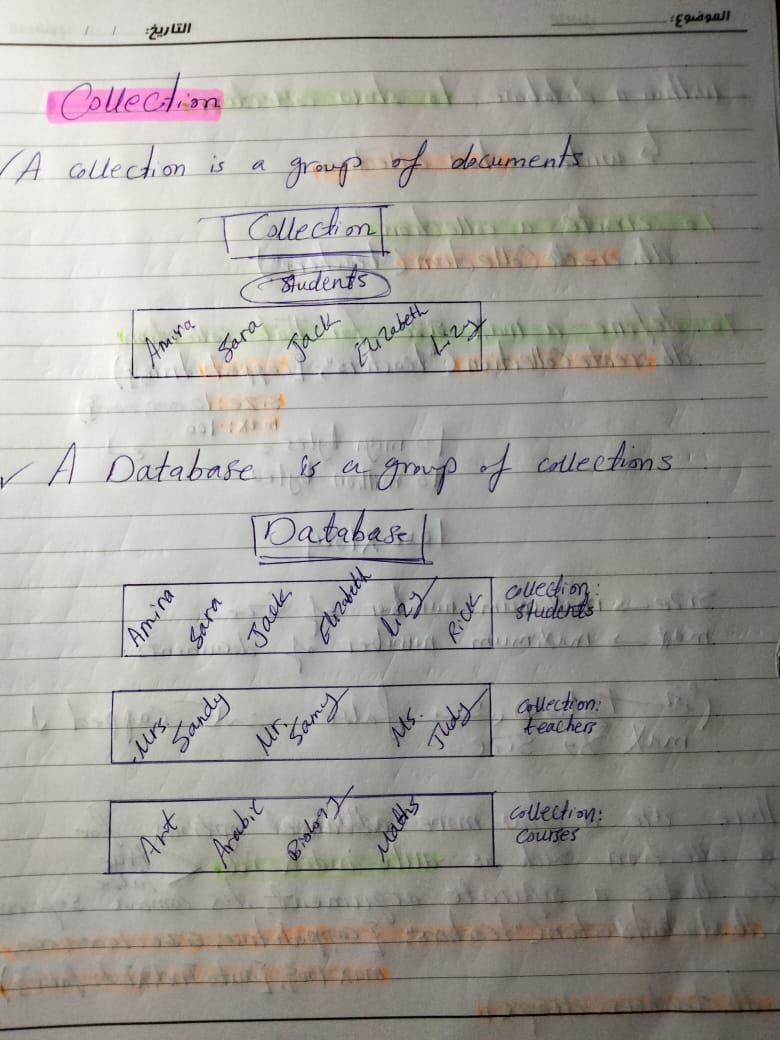 الموضوع:
التاريخ: / /
Collection
A collection is a group of documents
Collection
students
Amina Sara Jack Elizabeth Lizy
A Database is a group of collections
Database
Amina Sara Jack Elizabeth Lizy Rick
collection:
students
Mrs. Sandy Mr. Samy Ms. Judy
collection:
teachers
Art Arabic Biology Maths
collection:
courses